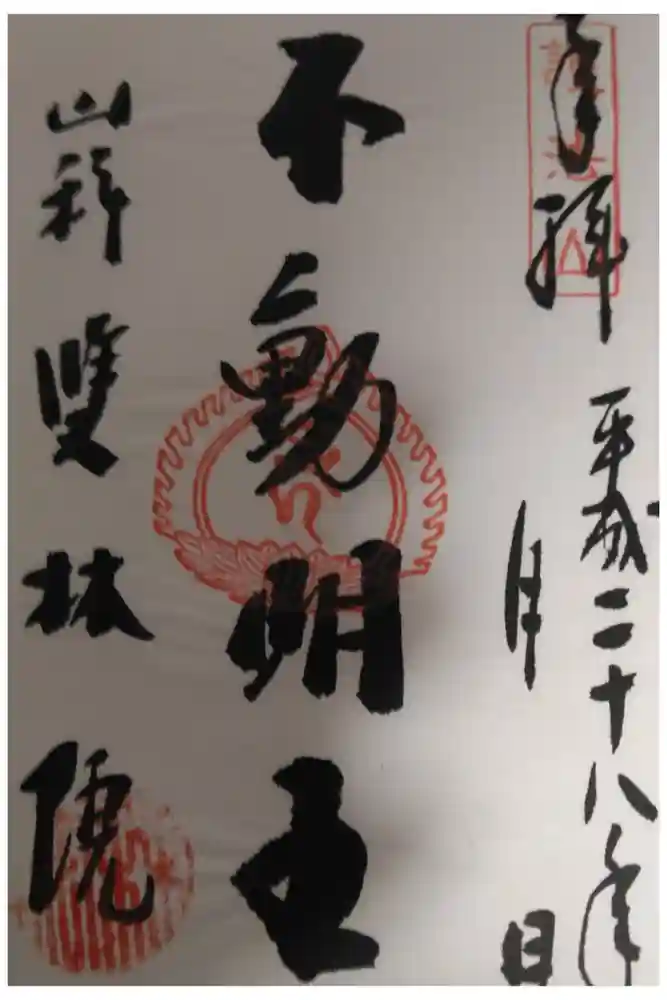 奉拝
平成二十八年
月 日
不動明王
山科 雙林院